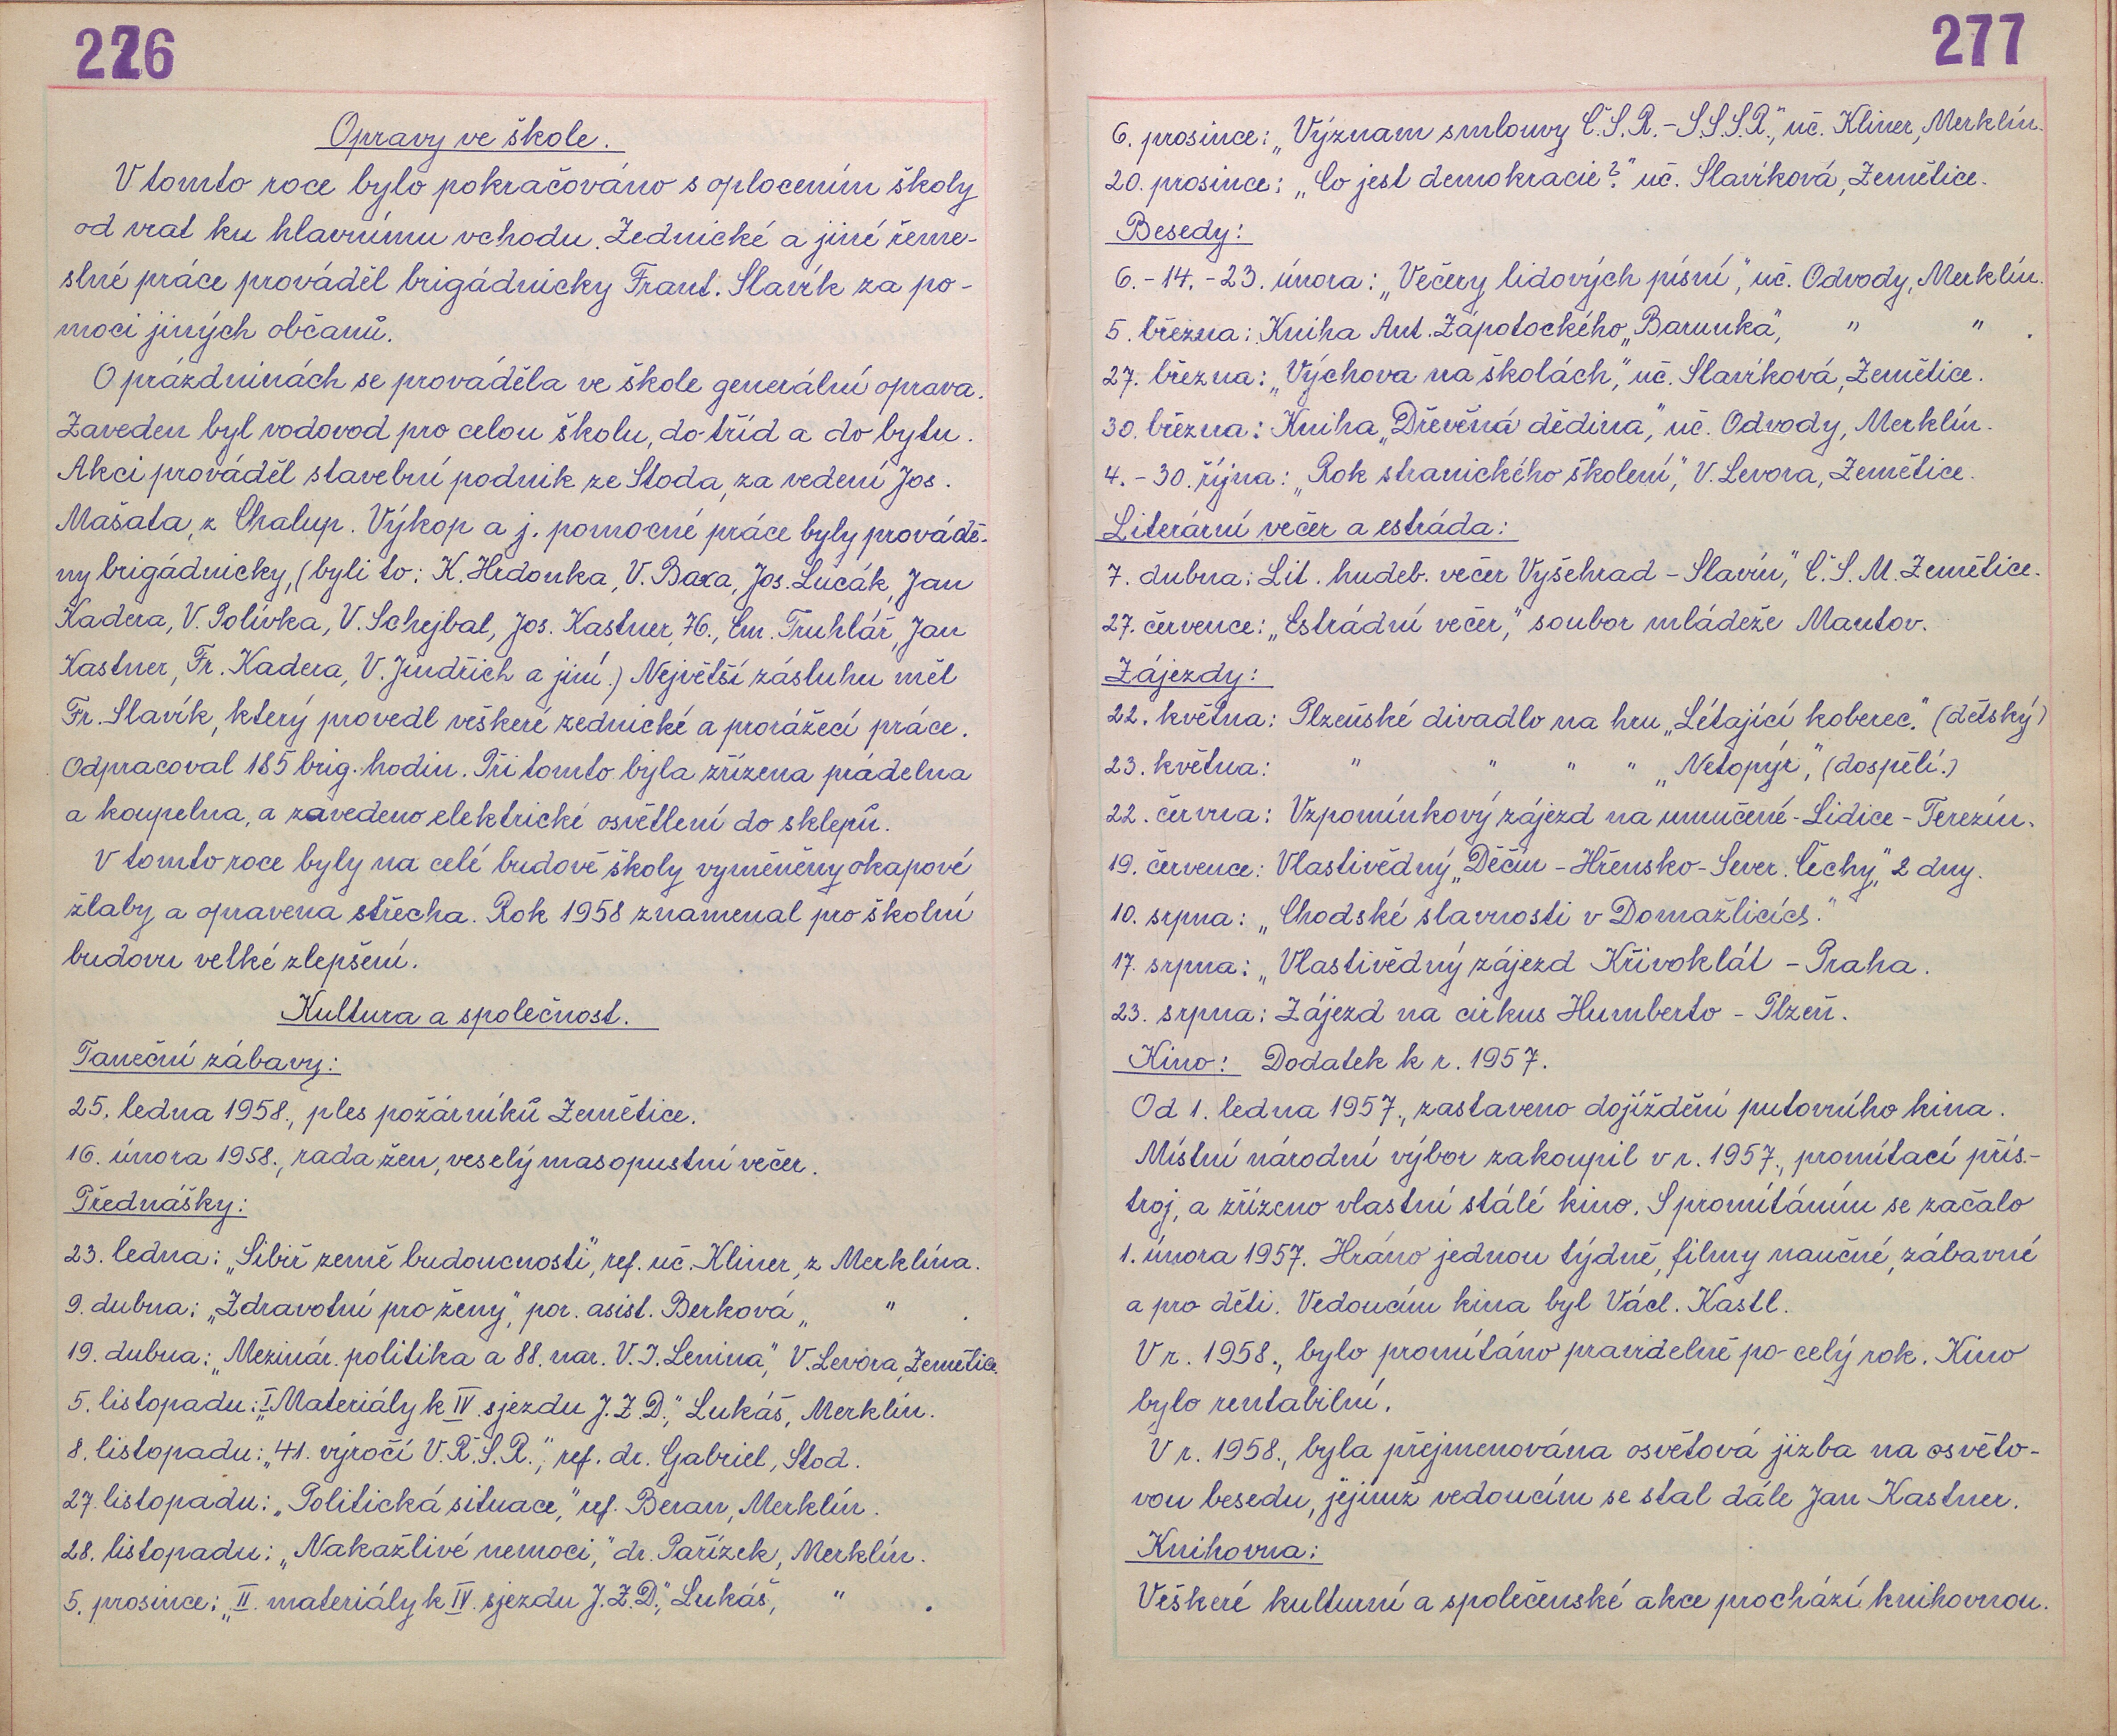 226
Opravy ve škole.
V tomto roce bylo pokračováno s oplocením školy
od vrat ku hlavnímu vchodu. Zednické a jiné řeme-
slné práce prováděl brigádnicky Frant. Slavík za po-
moci jiných občanů.
O prázdninách se prováděla ve škole generální oprava.
Zaveden byl vodovod pro celou školu, do tříd a do bytu.
Akci prováděl stavební podnik ze Stoda, za vedení Jos.
Mašata, z Chalup. Výkop a j. pomocné práce byly provádě-
ny brigádnicky, (byli to: K. Hrdonka, V. Baxa, Jos. Lucák, Jan
Kadera, V. Polívka, V. Schejbal, Jos. Kastner, 76., Em. Truhlář, Jan
Kastner, Fr. Kadera, V. Jindřich a jiní.) Největší zásluhu měl
Fr. Slavík, který provedl veškeré zednické a prorážecí práce.
Odpracoval 185 brig. hodin. Při tomto byla zřízena prádelna
a koupelna, a zavedeno elektrické osvětlení do sklepů.
V tomto roce byly na celé budově školy vyměněny okapové
žlaby a opravena střecha. Rok 1958 znamenal pro školní
budovu velké zlepšení.
Kultura a společnost.
Taneční zábavy:
25. ledna 1958., ples požárníků Zemětice.
16. února 1958., rada žen, veselý masopustní večer.
Přednášky:
23. ledna: „Sibiř země budoucnosti", ref. uč. Kliner, z Merklína.
9. dubna: „Zdravotní pro ženy", por. asist. Berková „ " .
19. dubna: „Mezinár. politika a 88. nar. V. I. Lenina", V. Levora, Zemětice.
5. listopadu: „I Materiály k IV. sjezdu J.Z.D.," Lukáš, Merklín.
8. listopadu: „41. výročí V.Ř.S.R.", ref. dr. Gabriel, Stod.
27. listopadu: „Politická situace," ref. Beran, Merklín.
28. listopadu: „Nakažlivé nemoci," dr. Pařízek, Merklín.
5. prosince: „II. materiály k IV. sjezdu J.Z.D.," Lukáš, " .
277
6. prosince: „Význam smlouvy Č.S.R.-S.S.S.R.", uč. Kliner, Merklín.
20. prosince: „Co jest demokracie?" uč. Slavíková, Zemětice.
Besedy:
6.-14.-23. února: „Večery lidových písní", uč. Odvody, Merklín.
5. března: Kniha Ant. Zápotockého „Barunka", " " .
27. března: „Výchova na školách," uč. Slavíková, Zemětice.
30. března: Kniha „Dřevěná dědina," uč. Odvody, Merklín.
4.-30. října: „Rok stranického školení," V. Levora, Zemětice.
Literární večer a estráda:
7. dubna: Lit. hudeb. večer Vyšehrad - Slavín", Č.S.M. Zemětice.
27. července: „Estrádní večer," soubor mládeže Mantov.
Zájezdy:
22. května: Plzeňské divadlo na hru „Létající koberec." (dětský)
23. května: " " " " „Netopýr", (dospělí.)
22. června: Vzpomínkový zájezd na umučené - Lidice - Terezín.
19. července: Vlastivědný „Děčín - Hřensko - Sever. Čechy", 2 dny.
10. srpna: „Chodské slavnosti v Domažlicícs."
17. srpna: „Vlastivědný zájezd Křivoklát - Praha.
23. srpna: Zájezd na cirkus Humberto - Plzeň.
Kino: Dodatek k r. 1957.
Od 1. ledna 1957., zastaveno dojíždění putovního kina.
Místní národní výbor zakoupil v r. 1957., promítací přís-
troj, a zřízeno vlastní stálé kino. S promítáním se začalo
1. února 1957. Hráno jednou týdně, filmy naučné, zábavné
a pro děti. Vedoucím kina byl Václ. Kastl.
V r. 1958., bylo promítáno pravidelně po celý rok. Kino
bylo rentabilní.
V r. 1958., byla přejmenována osvětová jizba na osvěto-
vou besedu, jejímž vedoucím se stal dále Jan Kastner.
Knihovna:
Veškeré kulturní a společenské akce prochází knihovnou.